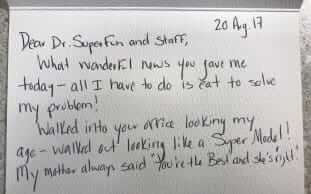 20 Aug. 17
Dear Dr. SuperFun and Staff,
What wonderful news you gave me
today - all I have to do is eat to solve
my problem!
Walked into your office looking my
age - walked out looking like a Super Model!
My mother always said "You're the Best and she's right!"